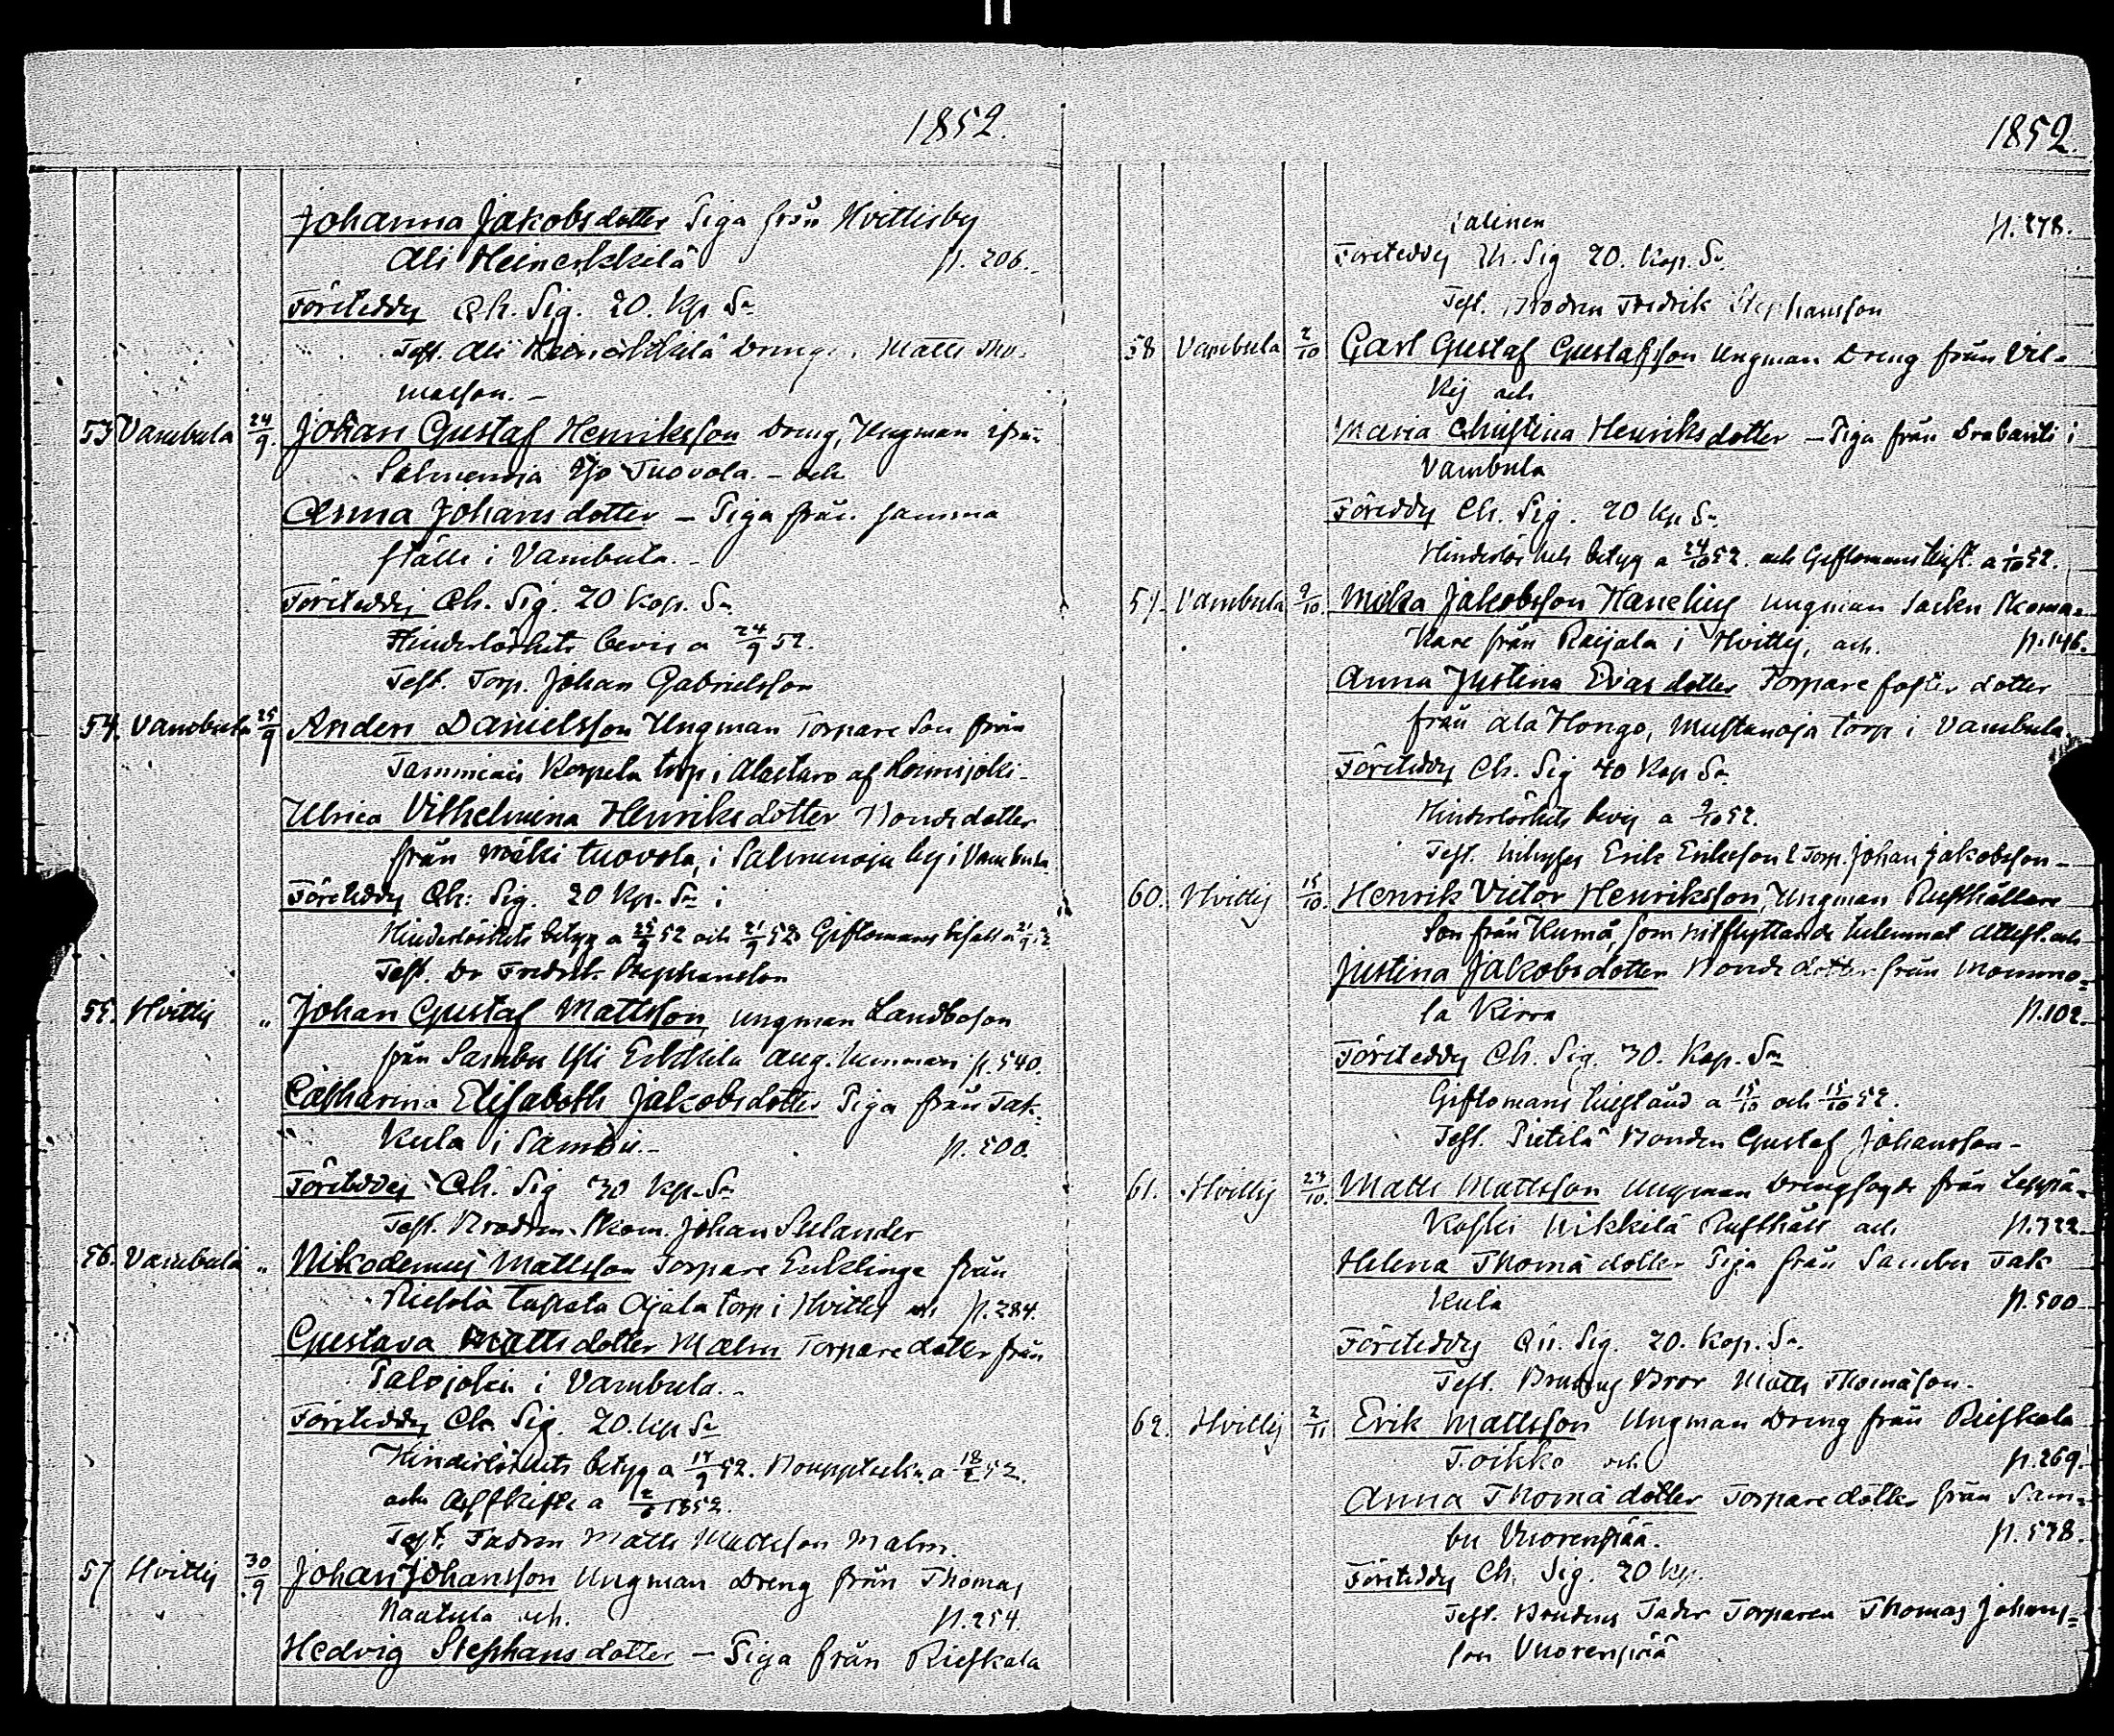 1852.
Johanna Jakobsdotter Piga från Hvittisby
Ali Heinerkkilä p. 206.
Företeddes Ch. Sig. 20. Kp. Sr
Test. Ali Heinerkkilä Dreng Matts Tho-
masson. -
53 Vambula 24/9. Johan Gustaf Henriksson Dreng, Ungman ifrån
Salmenoja Yso Tuovola. - och
Anna Johansdotter - Piga från samma
ställe i Vambula. -
Företeddes Ch. Sig. 20 Kop. Sr
Hinderlöshets bevis a 24/9 52.
Test. Torp. Johan Gabrielsson
54. Vambula 25/9 Anders Danielsson Ungman Torpare Son från
Tammiais Korpela torp i Alastaro af Loimijoki -
Ulrica Vilhelmina Henriksdotter Bondedotter
från Mäki tuovola, i Salmenoja by i Vambula
Företeddes Ch. Sig. 20 Kp. Sr
Hinderlöshets betyg a 25/9 52 och 21/9 52 Giftomans bifall a 21/9 52
Test. Dr Fredrik Stephansson
55. Hvittis " Johan Gustaf Mattsson ungman Landboson
från Sambu Yli Erkkilä p. 540.
Catharina Elisabeth Jakobsdotter Piga från Tak-
kula i Sambu. - p. 500.
Företeddes Ch. Sig 30 Kp. Sr
Test. Brodren Skom. Johan Selander
56. Vambula " Nikodemus Mattsson Torpare Enklinge från
Ajala torp i Hvittis och p. 284.
Gustava Mattsdotter Malm Torparedotter från
Palojoki i Vambula. -
Företeddes Ch. Sig. 20. Kp Sr
Hinderlöshets betyg a 17/9 52. Bouppteckn. a 18/2 52.
och Arfskifte a 1852.
Test. Fadren Matts Mattsson Malm.
57 Hvittis 30/9 Johan Johansson Ungman Dreng från Thomas
Naatula och. p. 254.
Hedvig Stephansdotter - Piga från Rieskala
1852.
Salinen p. 278.
Företeddes Ch. Sig 20. Kop. Sr
Test. Brodren Fredrik Stephansson
58 Vambula 2/10 Carl Gustaf Gustafsson Ungman Dreng från Vil-
kis och
Maria Christina Henriksdotter - Piga från Drabanti i
Vambula
Företeddes Ch. Sig. 20 Kp Sr
Hinderlöshets betyg a 24/10 52. och Giftomans tillst. a 1/10 52.
59. Vambula 9/10. Mikka Jakobsson Hanelius ungman Socken Skoma-
kare från Raijala i Hvittis, och. p. 146.
Anna Justina Esiasdotter Torpare foster dotter
från Ala Hongo, Mustanoja torp i Vambula
Företeddes Ch. Sig 40 Kop Sr
Hinderlöshets bevis a 9/10 52.
Test. Erik Eriksson & Torp. Johan Jakobsson -
60. Hvittis 15/10. Henrik Victor Henriksson, Ungman Rusthållare
Son från Kumå, som hitflyttande inlemnat Attest. och
Justina Jakobsdotter Bondedotter från Mommo-
la Kirra p. 102.
Företeddes Ch. Sig. 30. Kop. Sr
Giftomans tillstånd a 15/10 och 15/10 52.
Test. Pietilä Bonden Gustaf Johansson -
61. Hvittis 23/10. Matts Mattsson Ungman Drengfogde från Leppä-
koski Nikkilä Rusthåll och p. 322.
Helena Thomädotter Piga från Sambu Tak
kula p. 500
Företeddes Ch. Sig. 20. Kop. Sr.
Test. Brudens Bror Matts Thomäson -
62. Hvittis 2/11 Erik Mattsson Ungman Dreng från Rieskala
Toikko och p. 269.
Anna Thomädotter Torparedotter från Sam-
bu Vuorenpää. p. 538.
Företeddes Ch. Sig. 20 Kp.
Test. Brudens Fader Torparen Thomas Johans-
son Vuorenpää